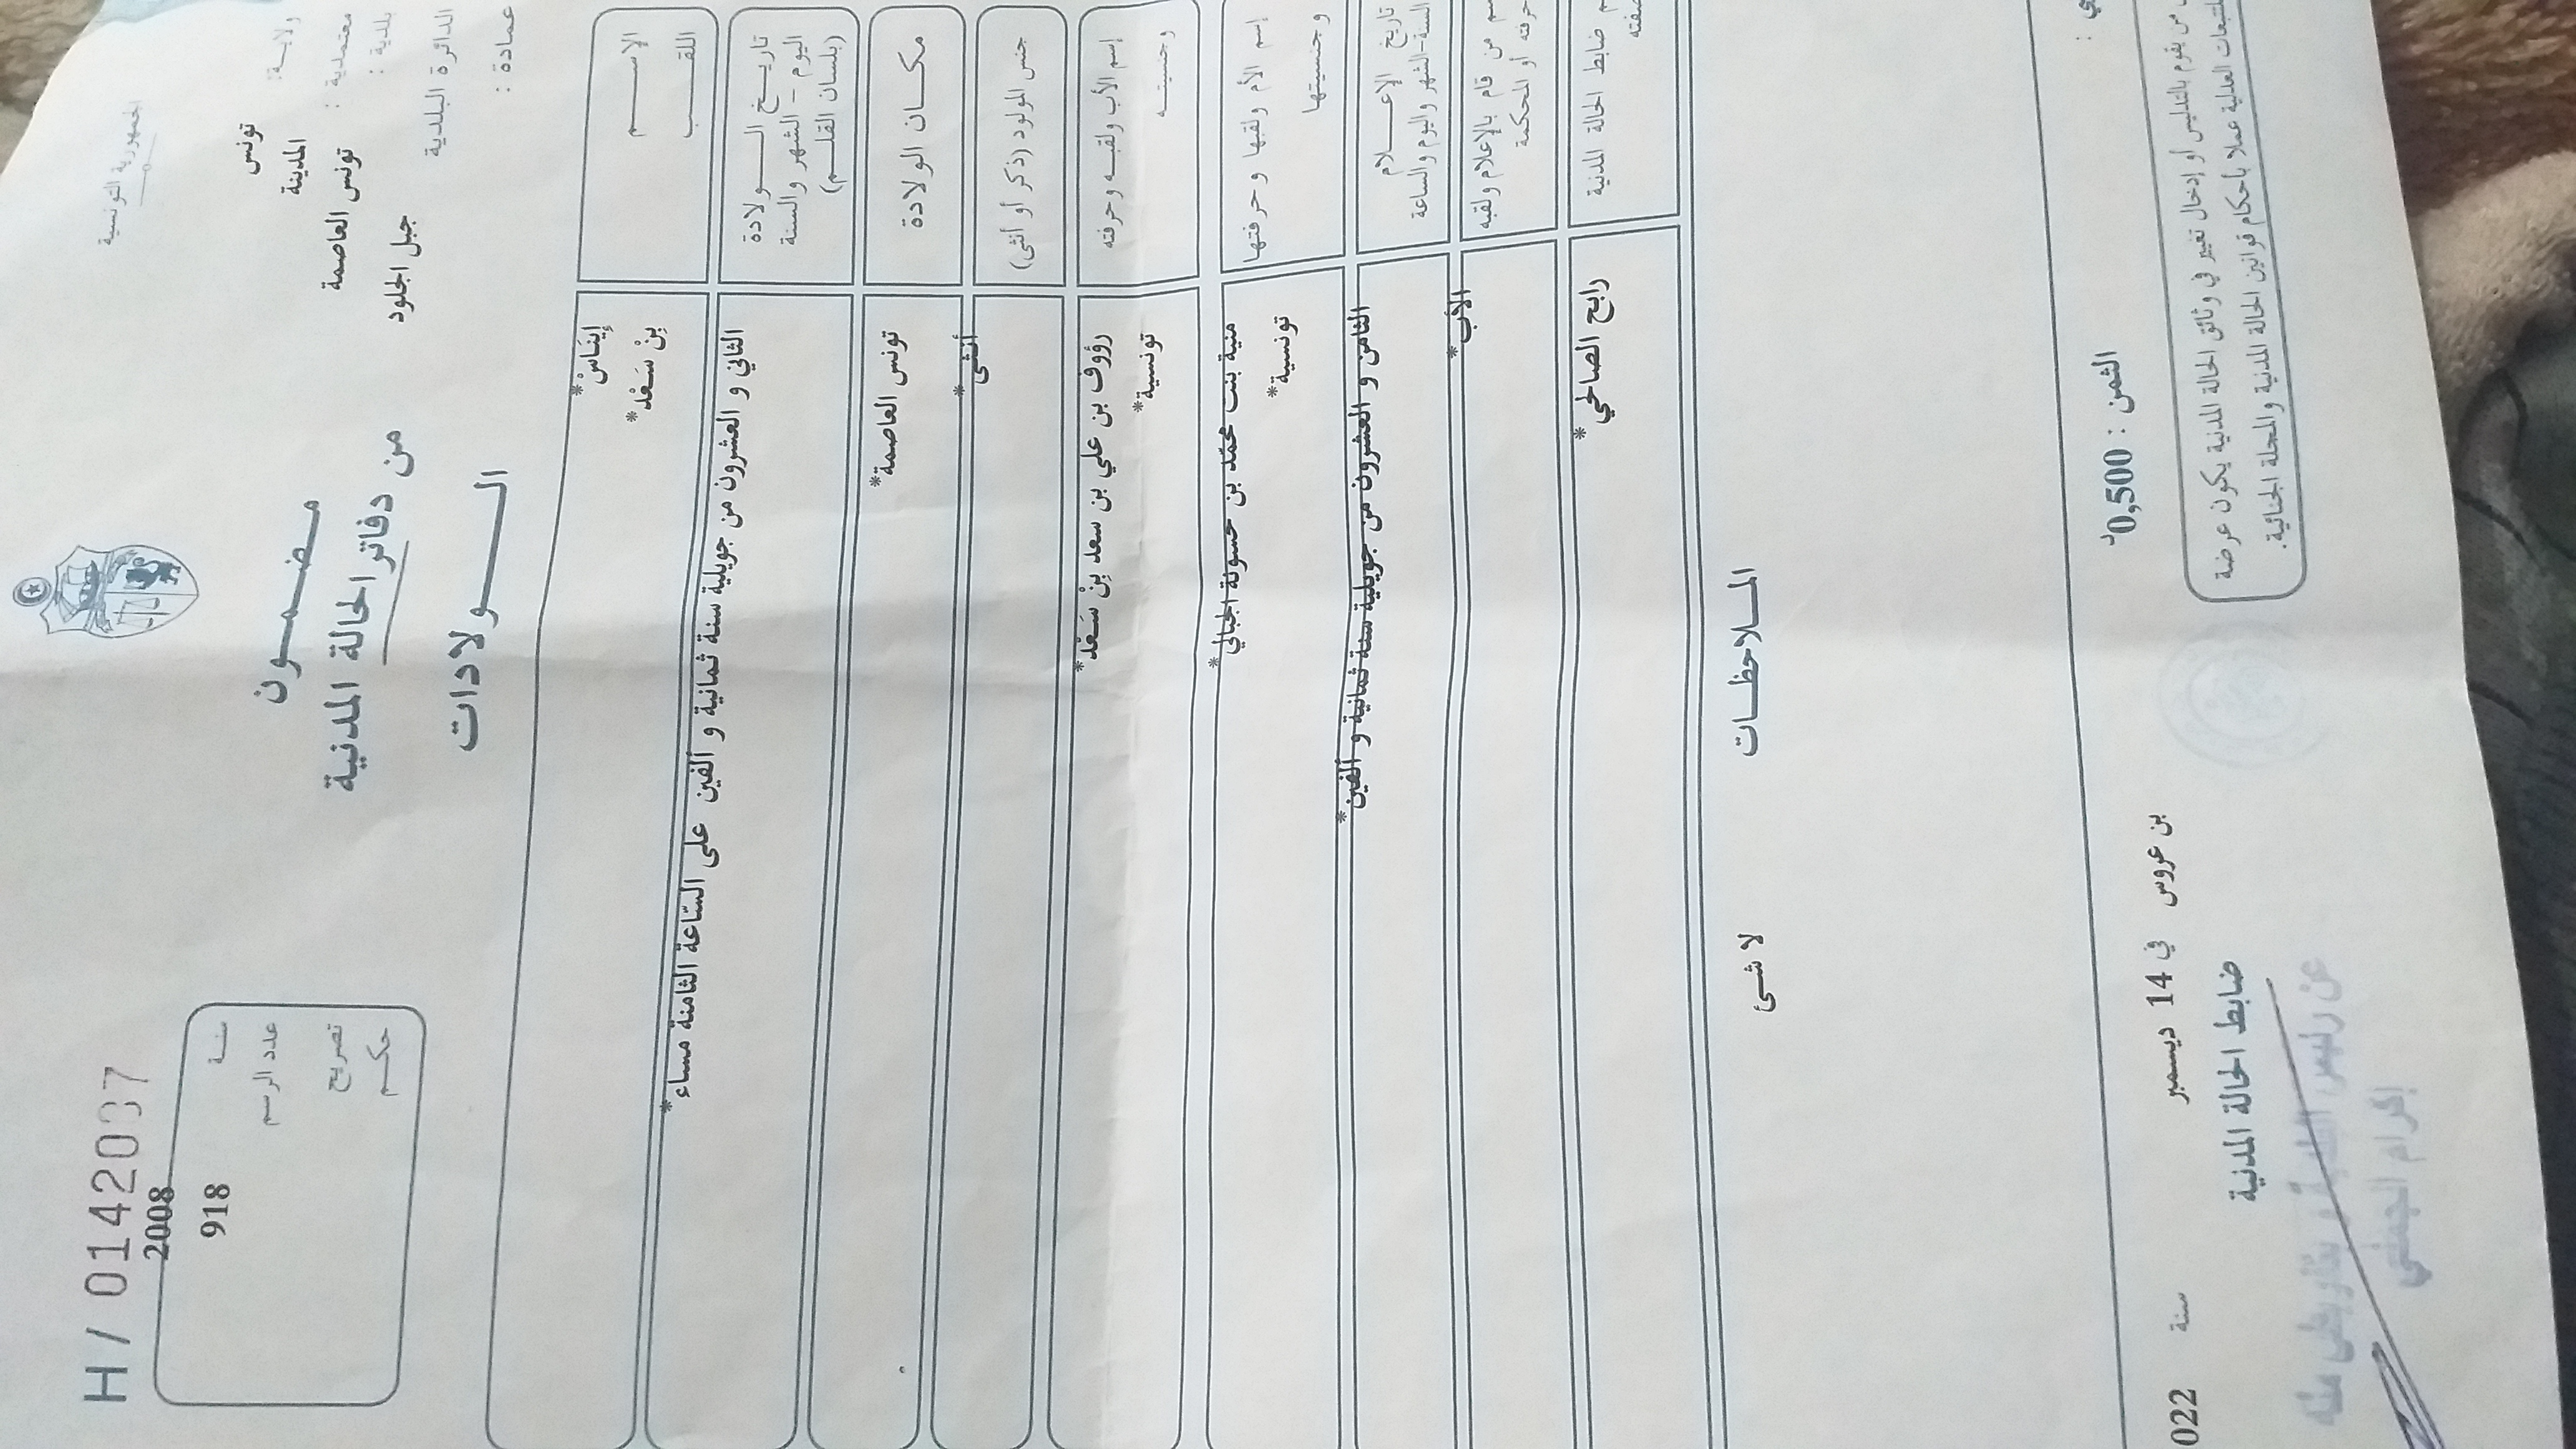 الجمهورية التونسية
ولاية: تونس
معتمدية : المدينة
بلدية : تونس العاصمة
الدائرة البلدية جبل الجلود
عمادة :
مضمون
من دفاتر الحالة المدنية
الولادات
H / 0142037
سنة 2008
عدد الرسم 918
تصريح
حكم
الاسم إينَاسْ*
اللقب بِنْ سَعْد*
تاريخ الولادة
اليوم - الشهر والسنة
(بلسان القلم)
الثاني و العشرون من جويلية سنة ثمانية و ألفين على السّاعة الثامنة مساء*
مكان الولادة تونس العاصمة*
جنس المولود (ذكر أو أنثى) أنثى*
إسم الأب ولقبه وحرفته رؤوف بن علي بن سعد بِنْ سَعْد*
وجنسيته تونسية*
إسم الأم ولقبها وحرفتها منية بنت محمّد بن حسونة الجبالي*
وجنسيتها تونسية*
تاريخ الإعلام
السنة-الشهر واليوم والساعة
الثامن و العشرون من جويلية سنة ثمانية و ألفين*
من قام بالإعلام ولقبه
حرفته أو المحكمة
الأب*
ضابط الحالة المدنية رابح الصالحي*
الملاحظات
لا شئ
الثمن : 0,500د
من يقوم بالتدليس أو إدخال تغيير في وثائق الحالة المدنية يكون عرضة
للتتبعات العدلية عملا بأحكام قوانين الحالة المدنية والمجلة الجنائية.
بن عروس في 14 ديسمبر سنة 022
ضابط الحالة المدنية
عن رئيس البلدية و بتفويض منه